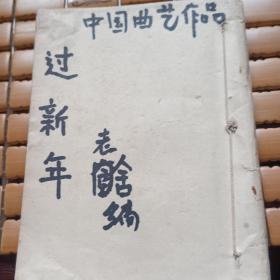 中国曲艺作品
过新年
老舍编